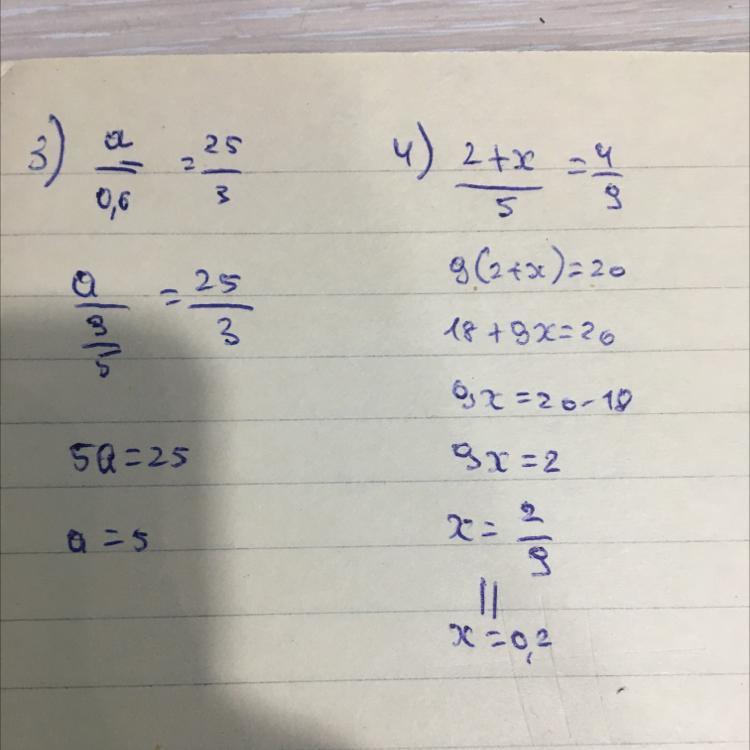 3) a/0,6 = 25/3
a/(3/5) = 25/3
5a = 25
a = 5
4) (2+x)/5 = 4/9
9(2+x) = 20
18 + 9x = 20
9x = 20 - 18
9x = 2
x = 2/9
||
x = 0,2